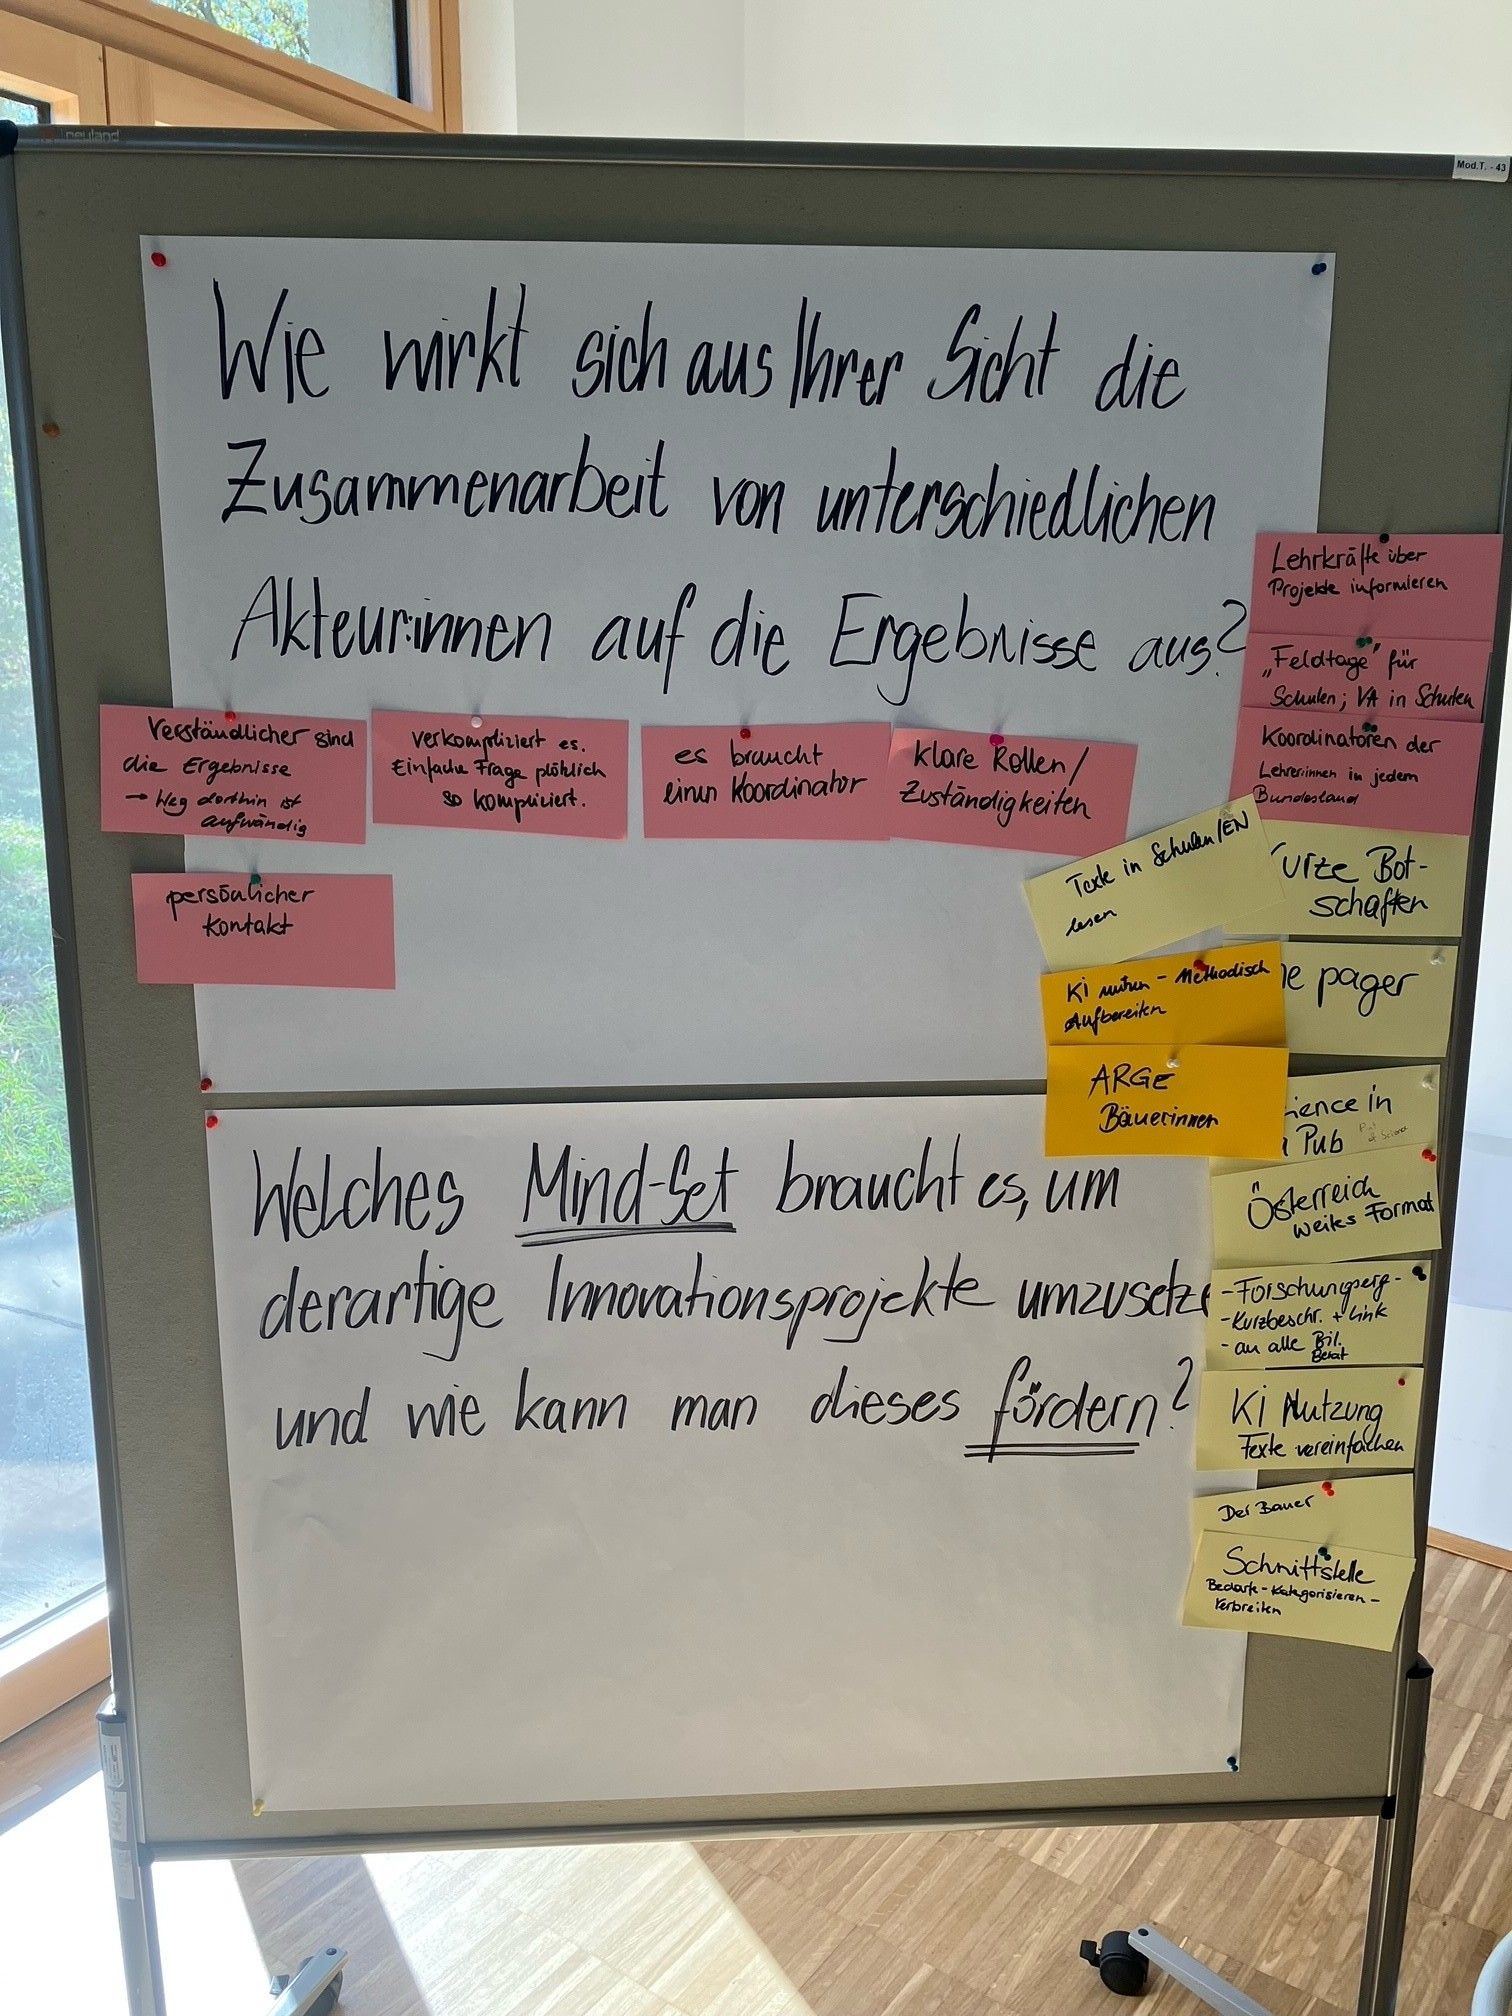 neuland
Mod.T. - 43
Wie wirkt sich aus Ihrer Sicht die
Zusammenarbeit von unterschiedlichen
Akteur:innen auf die Ergebnisse aus?
Verständlicher sind
die Ergebnisse
→ Weg dorthin ist
aufwändig
verkompliziert es.
Einfache Frage plötzlich
so kompliziert.
es braucht
einen Koordinator
klare Rollen/
Zuständigkeiten
persönlicher
Kontakt
Lehrkräfte über
Projekte informieren
„Feldtage" für
Schulen; VA in Schulen
Koordinatoren der
Lehrer:innen in jedem
Bundesland
Texte in Schulen/EN
lesen
urze Bot-
schaften
KI nutzen - Methodisch
Aufbereiten
e pager
ARGE
Bäuerinnen
ience in
Pub
Österreich
weites Format
Welches Mind-Set braucht es, um
derartige Innovationsprojekte umzusetze
und wie kann man dieses fördern?
- Forschungserg-
- Kurzbeschr. + Link
- an alle Bil.
Berat
KI Nutzung
Texte vereinfachen
Der Bauer
Schnittstelle
Bedarfe - Kategorisieren -
Verbreiten